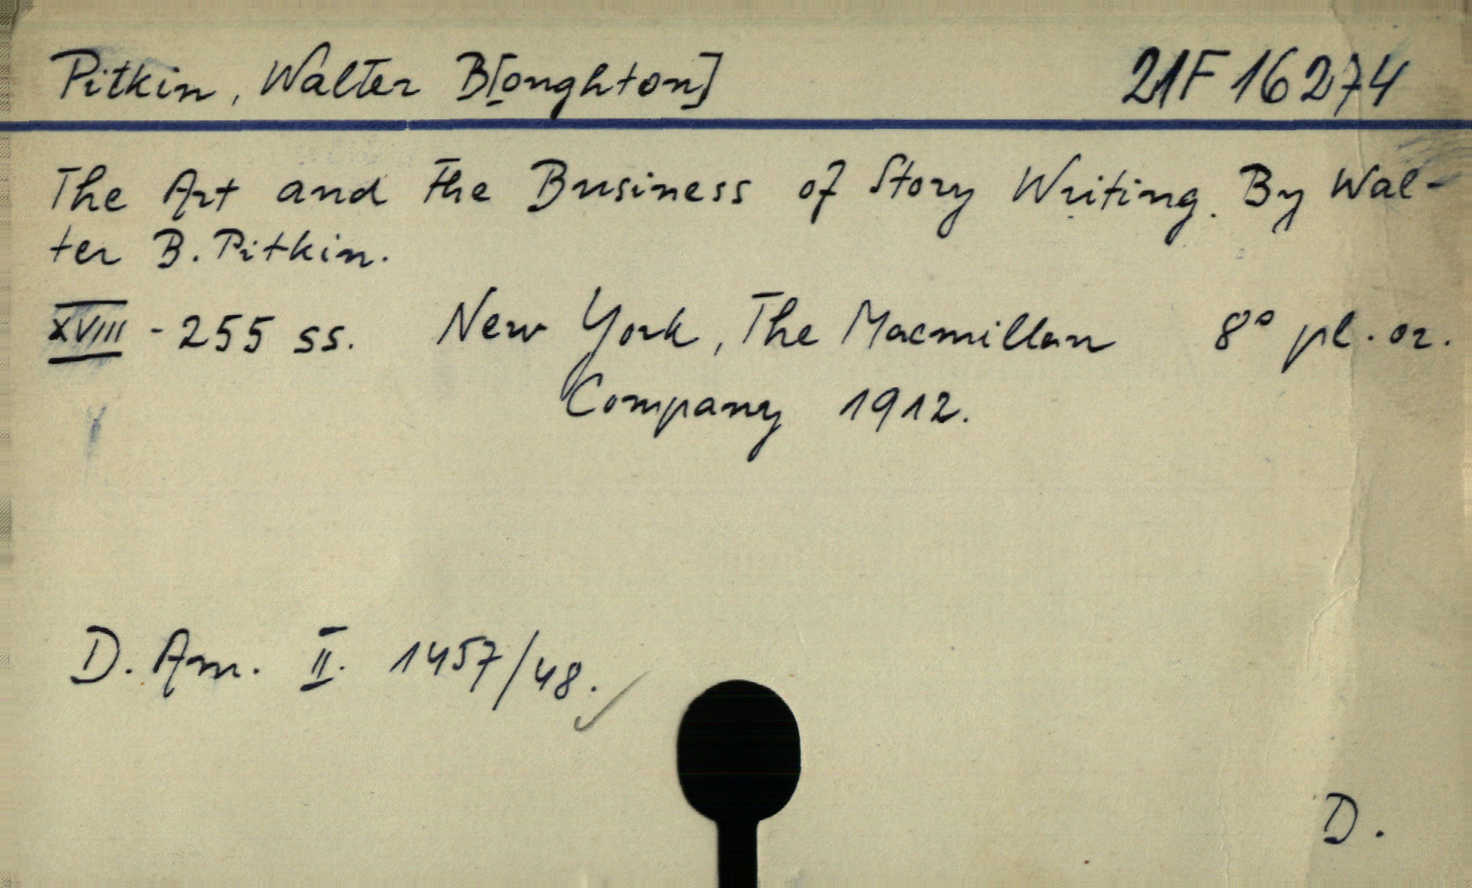 Pitkin, Walter B[oughton] 21F 16274
The Art and the Business of Story Writing. By Wal-
ter B. Pitkin.
XVIII - 255 ss. New York, The Macmillan 8° pl. or.
Company 1912.
D. Am. II. 1457/48.
D.